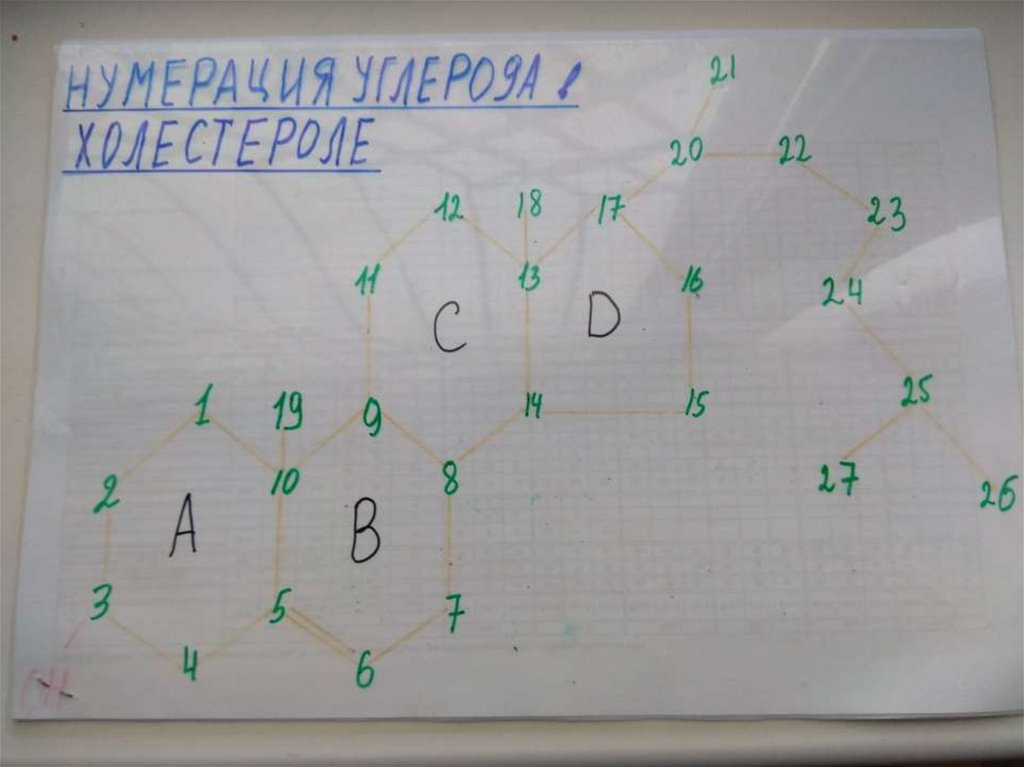 НУМЕРАЦИЯ УГЛЕРОДА в
ХОЛЕСТЕРОЛЕ
21
20 22
12 18 17 23
11 13 16 24
C D
1 19 9 14 15 25
2 10 8 27 26
A B
3 5 7
4 6